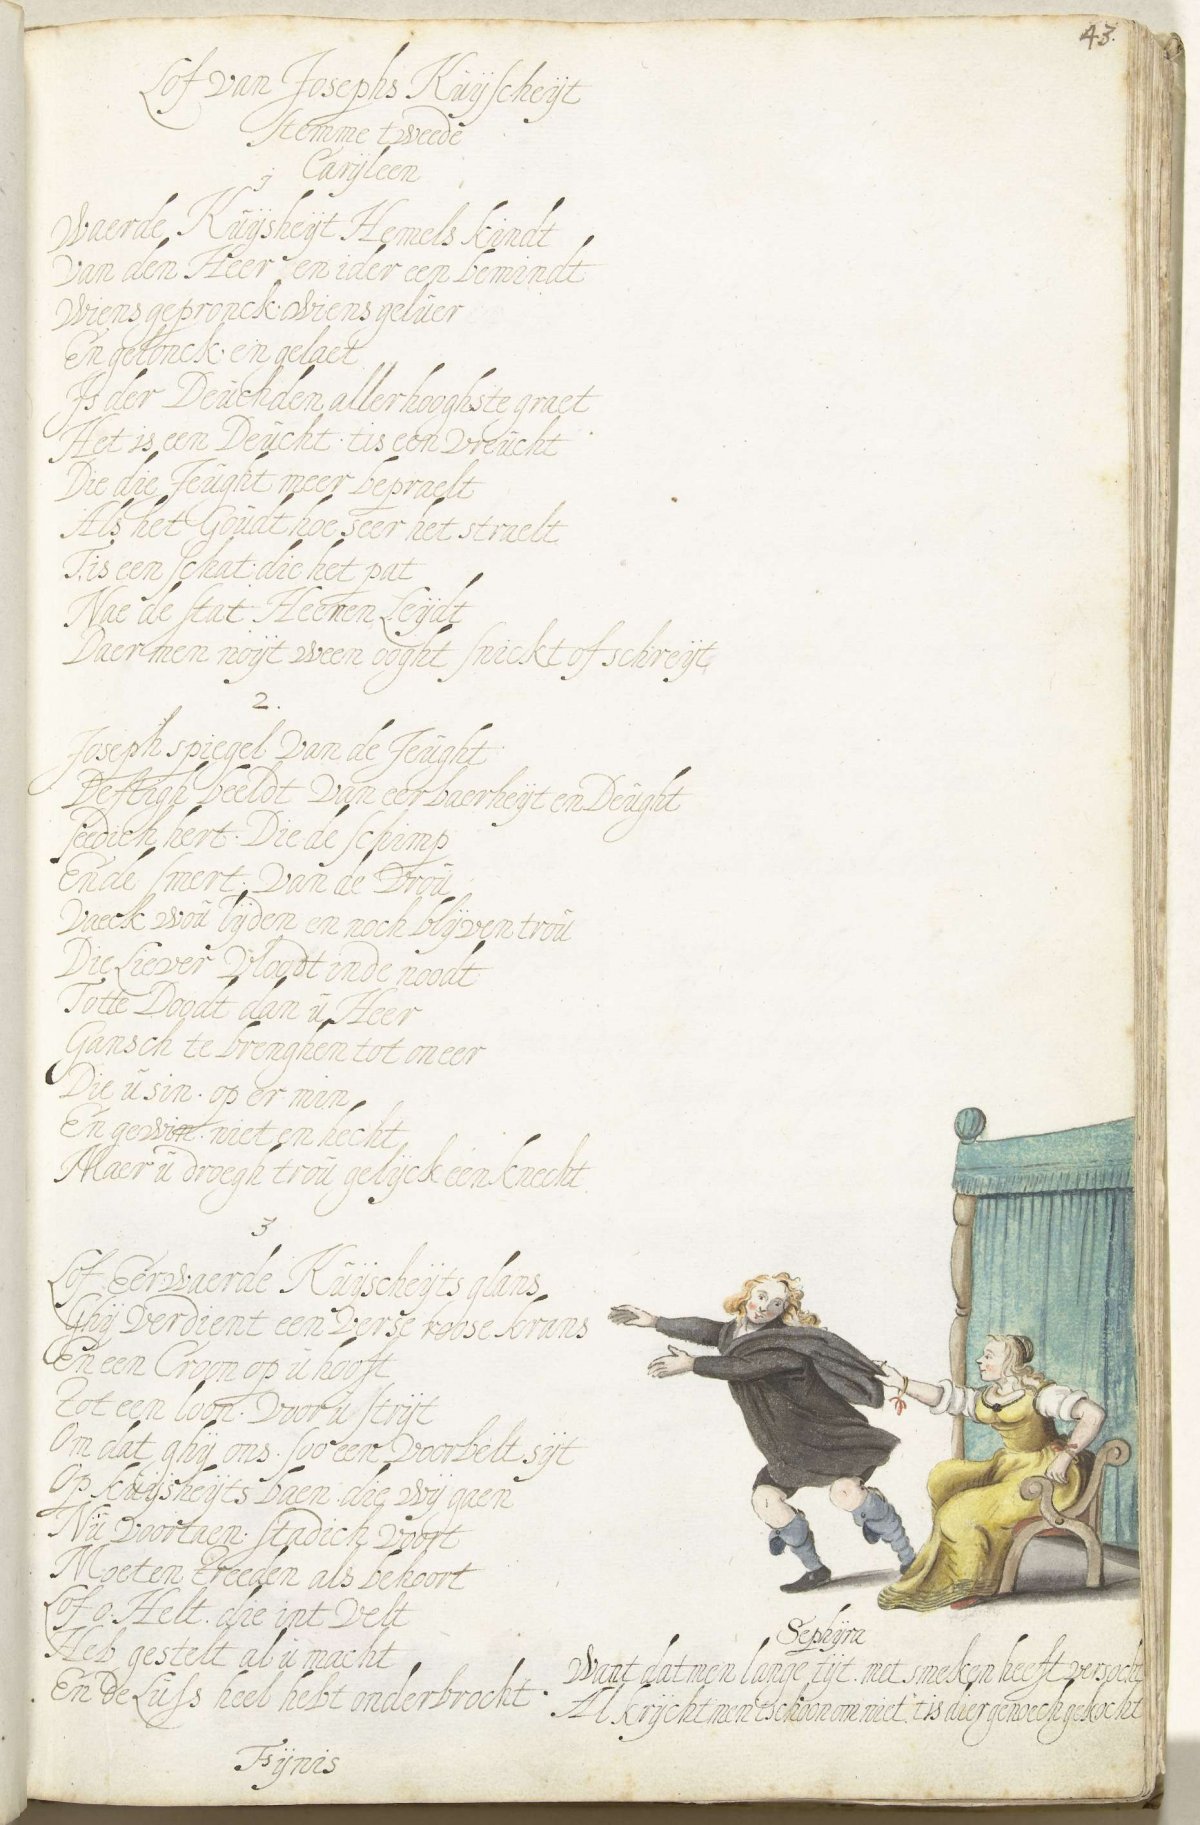 43.
Lof van Josephs Kuÿscheÿt
Stemme tweede
Carÿleen
1
Waerde Kuÿsheÿt Hemels kindt
Van den Heer en ider een bemindt
Wiens gepronck. wiens geluer
En gelonck. en gelaet
Is der Deuchden allerhooghste graet
Het is een Deucht. tis een vreucht
Die die Jeught meer bepraelt
Als het Goudt hoe seer het straelt
T.is een schat. die het pat
Nae de stat Heenen Leÿdt
Daer men noÿt ween ooght snickt of schreÿt
2.
Joseph spiegel van de Jeught
Deftigh beeldt van eerbaerheÿt en Deught
seedich hert. Die de schimp
Ende smert. van de Vrou
Vaeck wou lÿden en noch blÿven trou
Die Liever vloodt inde noodt
Totte Doodt dan u Heer
Gansch te brenghen tot oneer
Die u sin. op er min
En gewin. niet en hecht
Maer u droegh trou gelÿck een knecht
3
Lof Eerwaerde Kuÿscheÿts glans
Ghÿ verdient een verse roose krans
En een Croon op u hooft
Tot een loon. voor u strÿt
Om dat ghÿ ons. soo een voorbelt sÿt
Op kuÿsheÿts baen. die wÿ gaen
Nu voortaen. stadich voort
Moeten treeden als behoort
Lof o. Helt. die int velt
Heb gestelt al u macht
En De Luss heel hebt onderbrocht.
Fÿnis
Sephÿra
Want datmen lange tÿt. met smeken heeft versocht
Al krÿcht men tschoon om niet. t is dier genoech gekocht